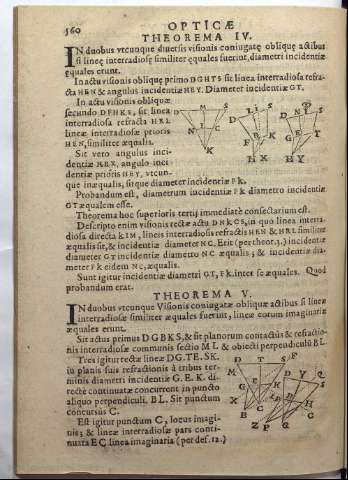 560
OPTICÆ
THEOREMA IV.
IN duobus vtcunque diuersis visionis coniugatę obliquę actibus
si lineę interradiosę similiter ęquales fuerint, diametri incidentiæ
ęquales erunt.
In actu visionis obliquę primo DGHTS sit linea interradiosa refra-
cta HEN & angulus incidentiæ HEY. Diameter incidentiæ GT.
In actu visionis obliquæ
secundo DFHKS, sit linea
interradiosa refracta HRL
lineæ interradiosæ prioris
HEN, similiter æqualis.
Sit vero angulus inci-
dentiæ HRX, angulo inci
dentiæ prioris HEY, vtcun-
que inæqualis, sitque diameter incidentiæ Fk.
Probandum est, diametrum incidentiæ Fk diametro incidentiæ
GT æqualem esse.
Theorema hoc superioris tertij immediatè consectarium est.
Descripto enim visionis rectæ actu DNKCS, in quo linea interra-
diosa directa KIM, lineis interradiosis refractis HEN & HRL similiter
æqualis sit, & incidentiæ diameter NC. Erit (per theor. 3.) incidentiæ
diameter GT incidentiæ diametro NC æqualis; & incidentiæ dia-
meter Fk eidem NC, æqualis.
Sunt igitur incidentiæ diametri GT, Fk. inter se æquales. Quod
probandum erat.
THEOREMA V.
IN duobus vtcunque Visionis coniugatæ obliquæ actibus si lineæ
interradiosæ similiter æquales fuerint; lineæ eorum imaginariæ
æquales erunt.
Sit actus primus DGBKS, & sit planorum contactûs & refractio-
nis interradiosæ communis sectio ML & obiecti perpendiculũ BL.
Tres igitur rectæ lineæ DG. TE. SK.
in planis suis refractionis à tribus ter-
minis diametri incidentiæ G. E. K. di-
rectè continuatæ concurrent in puncto
aliquo perpendiculi. BL. Sit punctum
concursûs C.
Est igitur punctum C, locus imagi-
nis; & lineæ interradiosæ pars conti-
nuata EC linea imaginaria (per def. 12.)